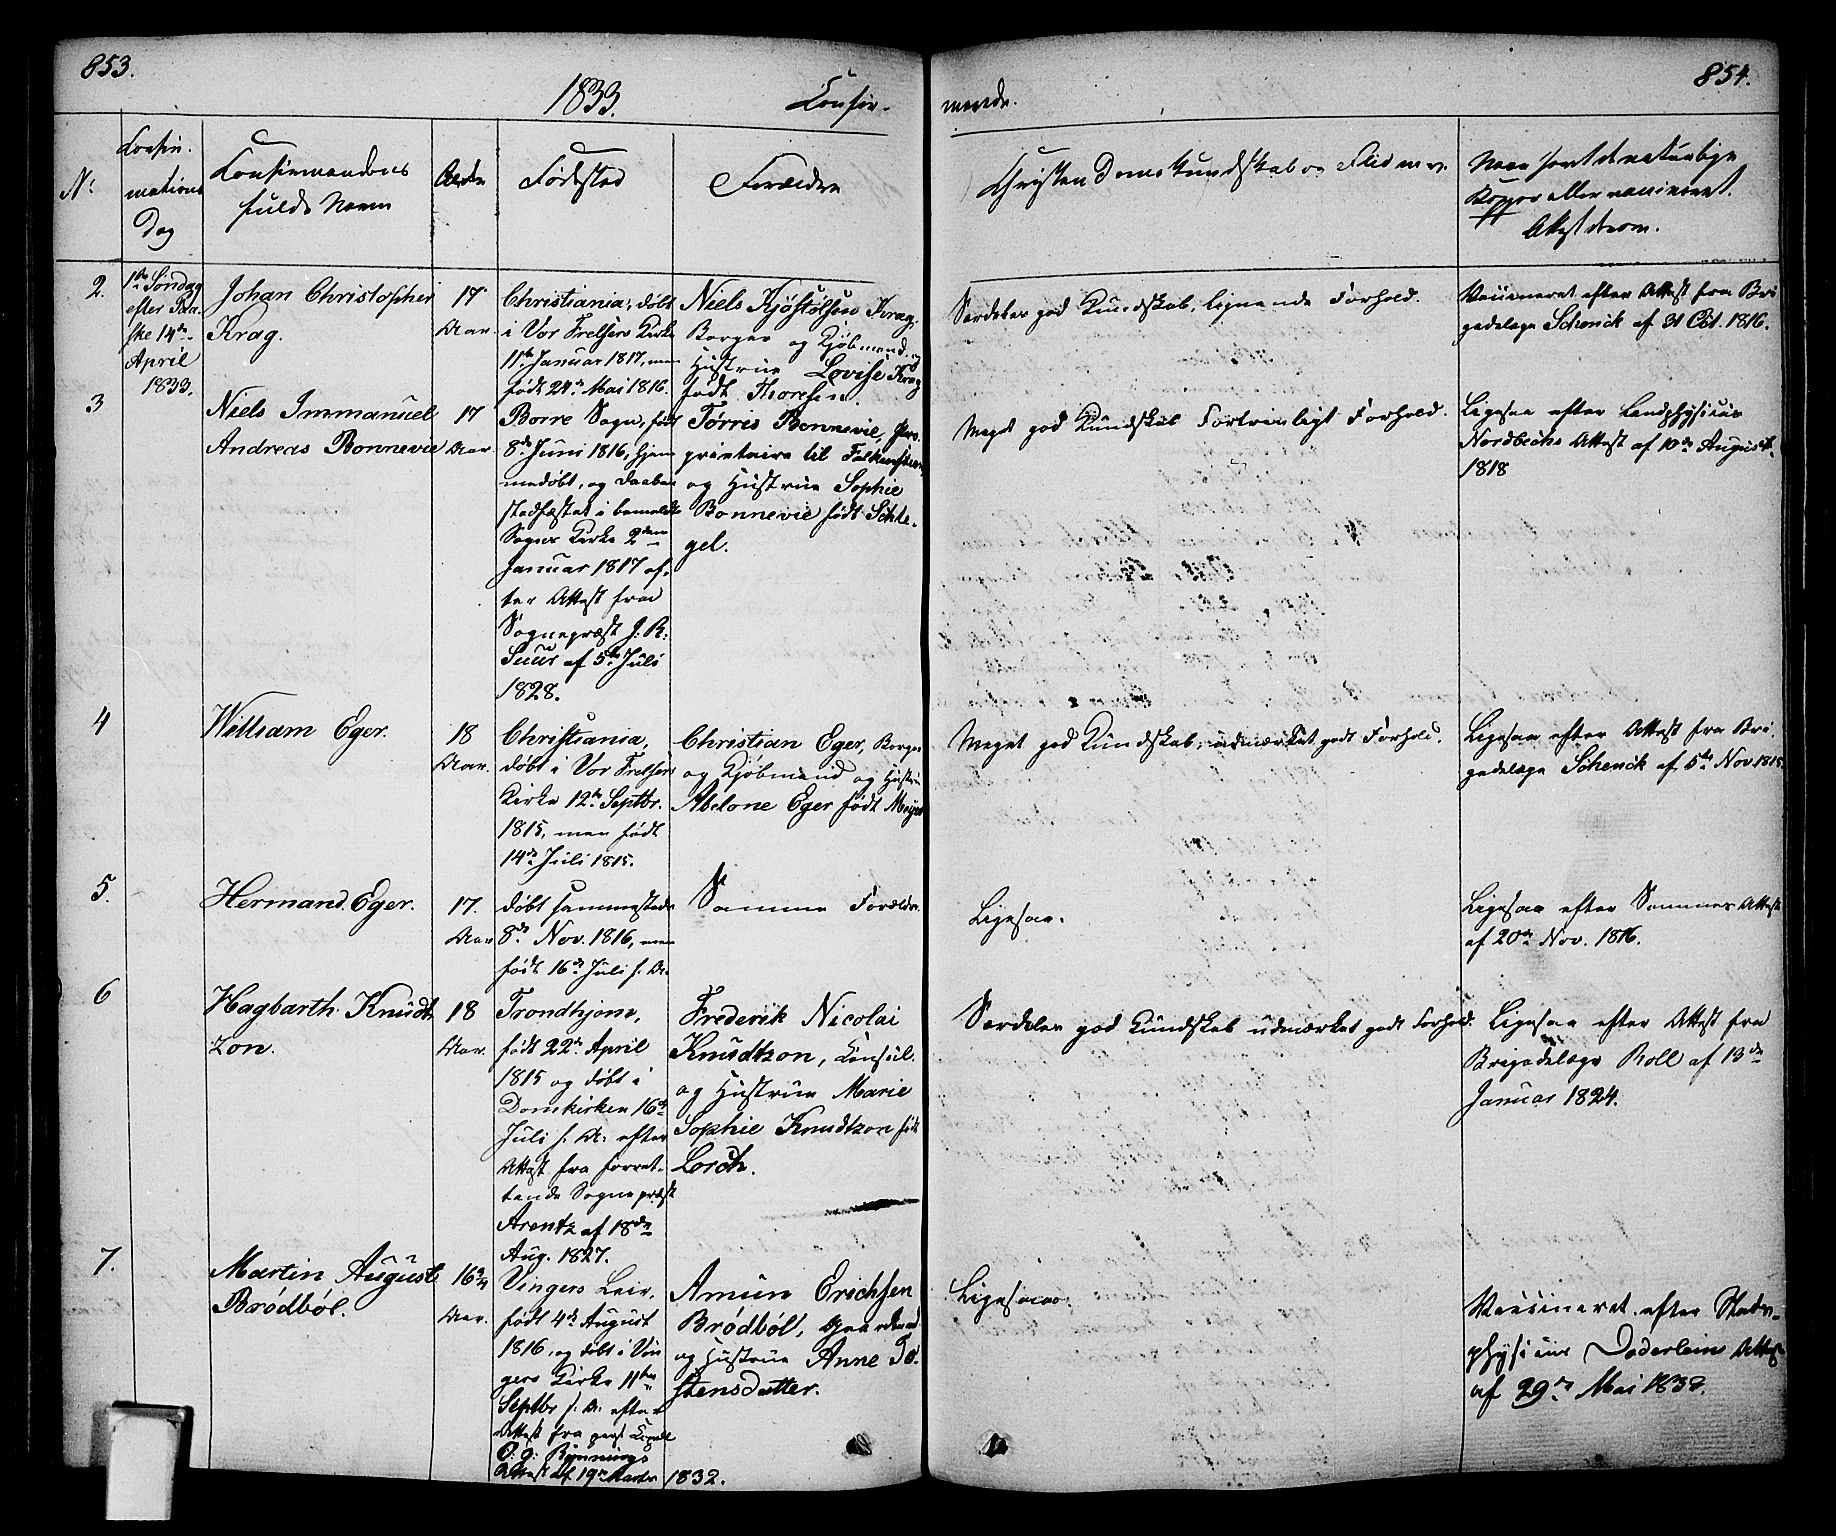 853.
1833.
Confir-
No
Confir-
mations
Dag
Confirmandens
fulde Navn
Alder
Fødested
Forældre
2.
1ste Søndag
efter Paa-
ske 14de
April
1833.
Johan Christopher
Krag.
17
Aar.
Christiania, døbt
i Vor Frelsers Kirke
11te Januar 1817, men
født 24de Mai 1816.
Niels Kjøstolfsen Krag,
Borger og Kjøbmand og
Hustrue Lovise Krag
født Thoresen.
3
Niels Immanuel
Andreas Bonnevie
17
Aar.
Borre Sogn, født
8de Juni 1816, hjem-
medøbt, og Daaben
stadfæstet i bemeldte
Sogns Kirke 2den
Januar 1817 ef-
ter Attest fra
Sognepræst J. R.
Suur af 5te Juli
1828.
Tørris Bonnevie, Pro-
prietaire til Falkensteen
og Hustrue Sophie
Bonnevie født Schle-
gel.
4
William Eger.
18
Aar.
Christiania,
døbt i Vor Frelsers
Kirke 12te Septbr.
1815, men født
14de Juli 1815.
Christian Eger, Borger
og Kjøbmand og Hustrue
Abelone Eger født Meyer
5.
Hermand Eger.
17.
Aar
døbt sammesteds
8de Nov. 1816, men
født 16de Juli s. A.
Samme Forældre.
6
Hagbarth Knudt-
zon.
18
Aar.
Trondhjem,
født 22de April
1815 og døbt i
Domkirken 16de
Juli s. A. efter
Attest fra forret-
tende Sognepræst
Arentz af 18de
Aug. 1827.
Frederik Nicolai
Knudtzon, Consul
og Hustrue Marie
Sophie Knudtzon født
Lorch.
7.
Martin August
Brødbøl.
16 3/4
Aar.
Vingers Leir,
født 4de August
1816, og døbt i Vin-
gers Kirke 11te
Septbr s. A. efter
Attest fra
Attest af 19de Marts 1832.
Amun Erichsen
Brødbøl, Gaardmand
og Hustrue Anne To-
stensdatter.
854.
merede.
Christendomskundskab og Flid m. v.
Naar havt de naturlige
Kopper eller vaccineret.
Attest derom.
Særdeles god Kundskab, lignende Forhold.
Vaccineret efter Attest fra Bri-
gadelæge Schenck af 31 Oct. 1816.
Meget god Kundskab Fortrinligt Forhold.
Ligesaa efter Landphysicus
Nordbechs Attest af 10de August
1818
Meget god Kundskab, udmærket godt Forhold.
Ligesaa efter Attest fra Bri-
gadelæge Schenck af 5te Nov 1815.
Ligesaa.
Ligesaa efter Sammes Attest
af 20de Nov. 1816.
Særdeles god Kundskab udmærket godt Forhold.
Ligesaa efter Attest fra
Brigadelæge Roll af 13de
Januar 1824.
Ligesaa.
Vaccineret efter Stads-
physicus Døderleins Attest
af 29de Mai 1832.